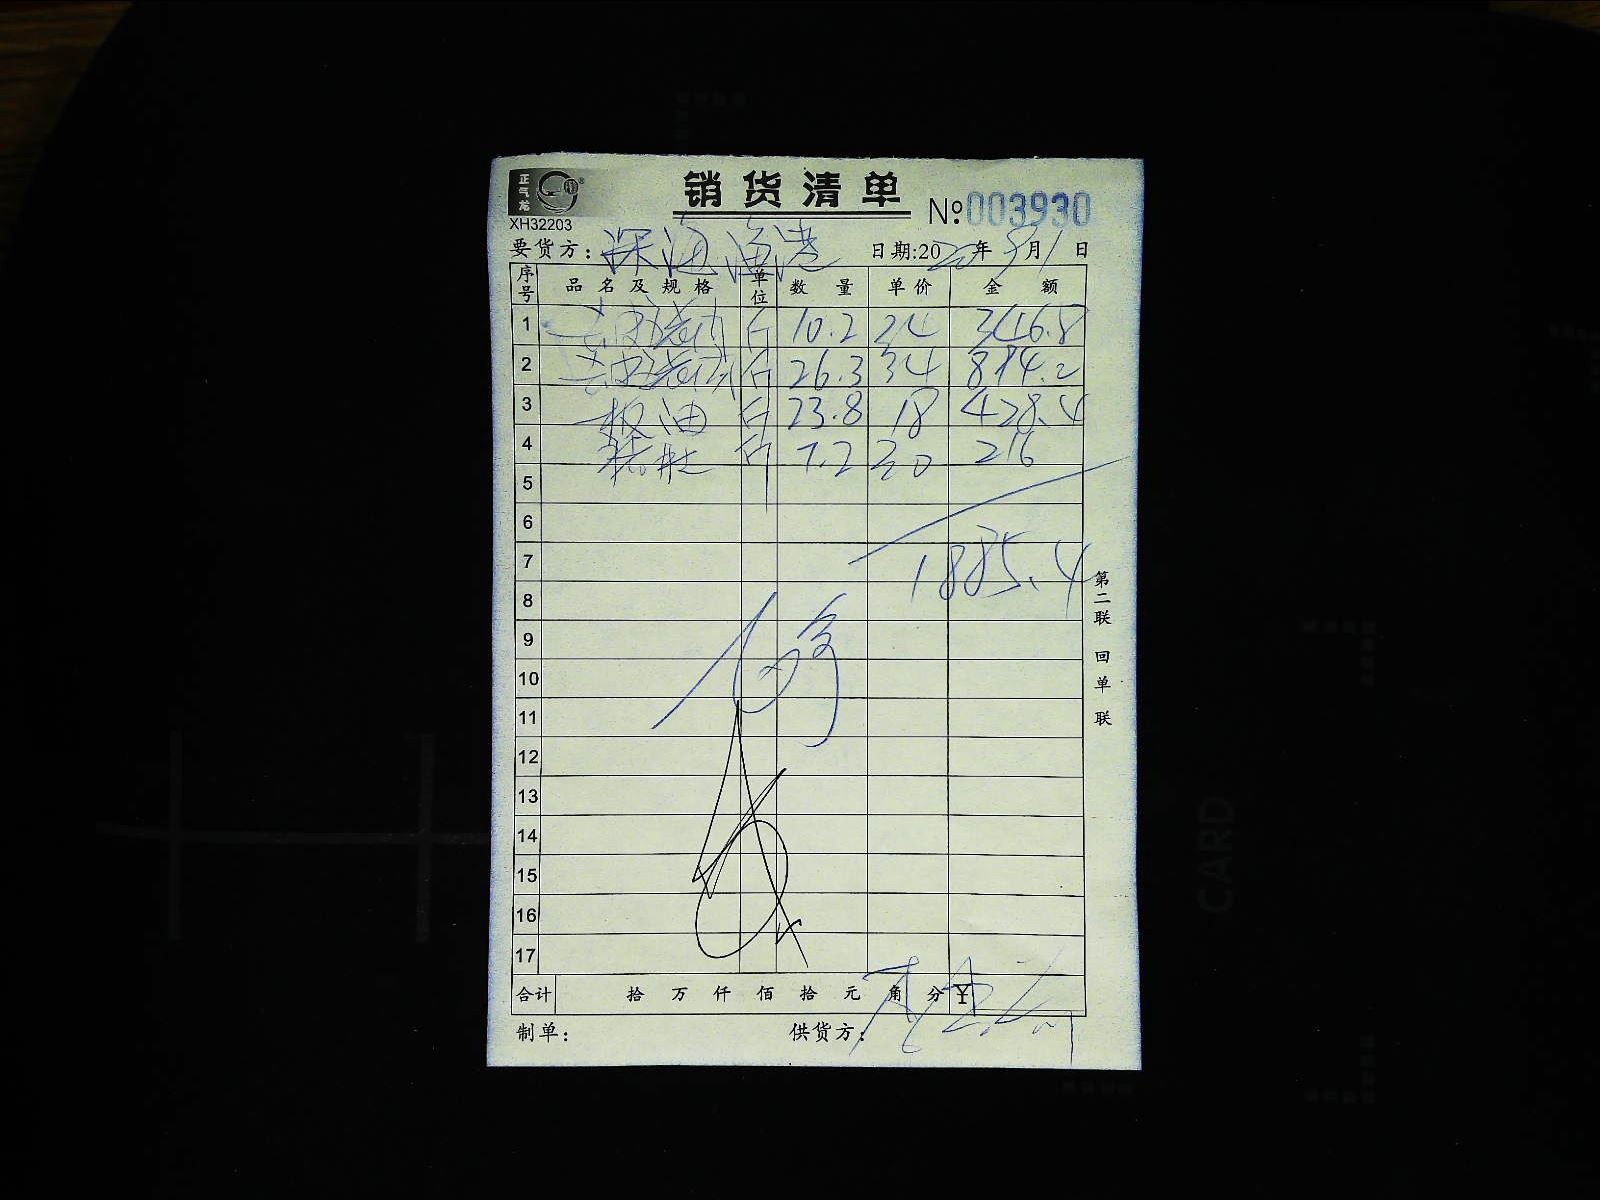 正气龙
销货清单
№003930
XH32203
要货方：深海渔港 日期:2020年9月1日
序号 品名及规格 单位 数量 单价 金额
1 斤 10.2 34 346.8
2 斤 26.3 34 894.2
3 板油 斤 23.8 18 428.4
4 斤 7.2 30 216
5
6
7 1885.4
8
9
10
11
12
13
14
15
16
17
合计 拾万仟佰拾元角分 ¥
制单： 供货方：
第二联 回单联
CARD